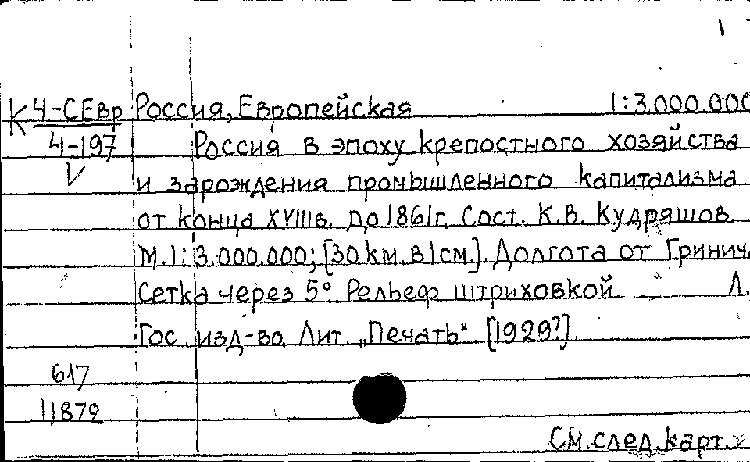 К Ч-СЕвр Россия, Европейская 1:3.000.000
4-197 Россия в эпоху крепостного хозяйства
V и зарождения промышленного капитализма
от конца XVIIIв. до 1861г. Сост. К.В. Кудряшов
М.1:3.000.000; [30км. в 1см.]. Долгота от Гринич.
Сетка через 5° Рельеф штриховкой Л.
Гос. изд-во. Лит „Печать“ [1929?]
617
11872
См. след. карт.